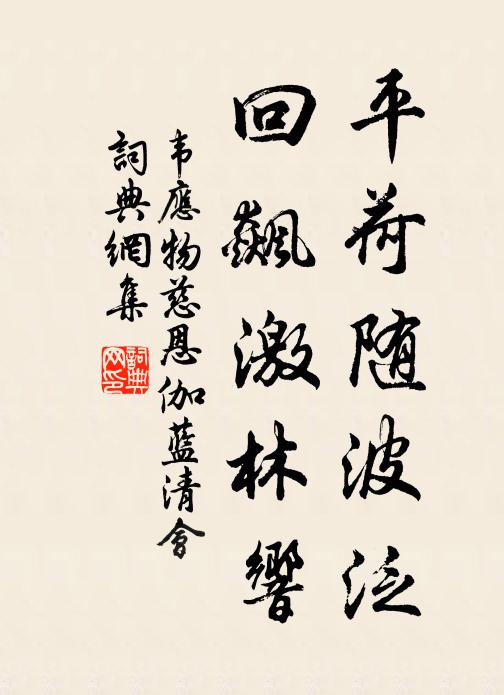 平荷随波泛
回飙激林響
韦應物慈恩伽藍清會
詞典網集
詞典网印